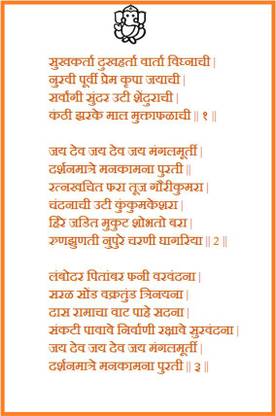 सुखकर्ता दुखहर्ता वार्ता विघ्नाची |
नुरवी पूर्वी प्रेम कृपा जयाची |
सर्वांगी सुंदर उटी शेंदुराची |
कंठी झरके माल मुक्ताफळाची || १ ||
जय देव जय देव जय मंगलमूर्ती |
दर्शनमात्रे मनकामना पुरती ||
रत्नखचित फरा तूज गौरीकुमरा |
चंदनाची उटी कुंकुमकेशरा |
हिरे जडित मुकुट शोभतो बरा |
रुणझुणती नुपुरे चरणी घागरिया || 2 ||
लंबोदर पितांबर फनी वरवंदना |
सरळ सोंड वक्रतुंड त्रिनयना |
दास रामाचा वाट पाहे सदना |
संकटी पावावे निर्वाणी रक्षावे सुरवंदना |
जय देव जय देव जय मंगलमूर्ती |
दर्शनमात्रे मनकामना पुरती || ३ ||